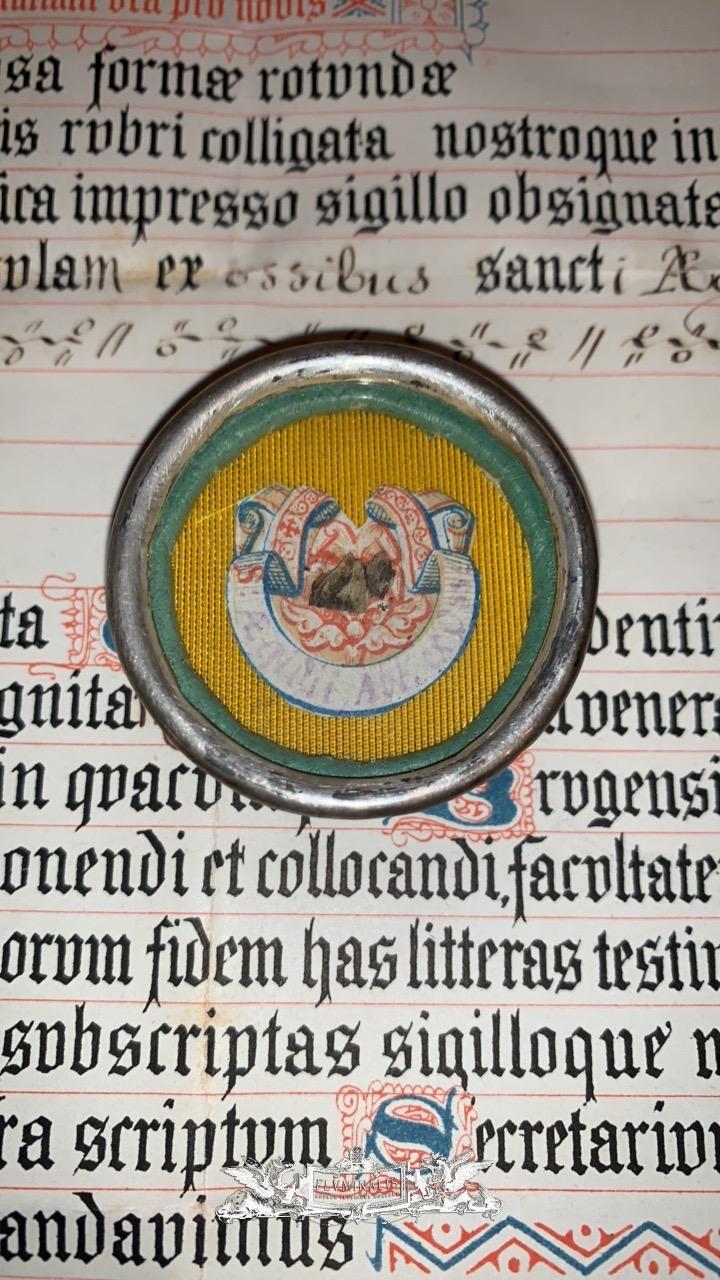 ora pro nobis
sa formæ rotvndæ
is rvbri colligata nostroque in
ica impresso sigillo obsignata
vlam ex ossibus sancti Æ
ta
denti
gnita
veners
in qvacv
Brvgensi
onendi et collocandi, facvltate
orvm fidem has litteras testi
svbscriptas sigilloque
ra scriptvm Secretariv
FLVMINALIS
andavimus